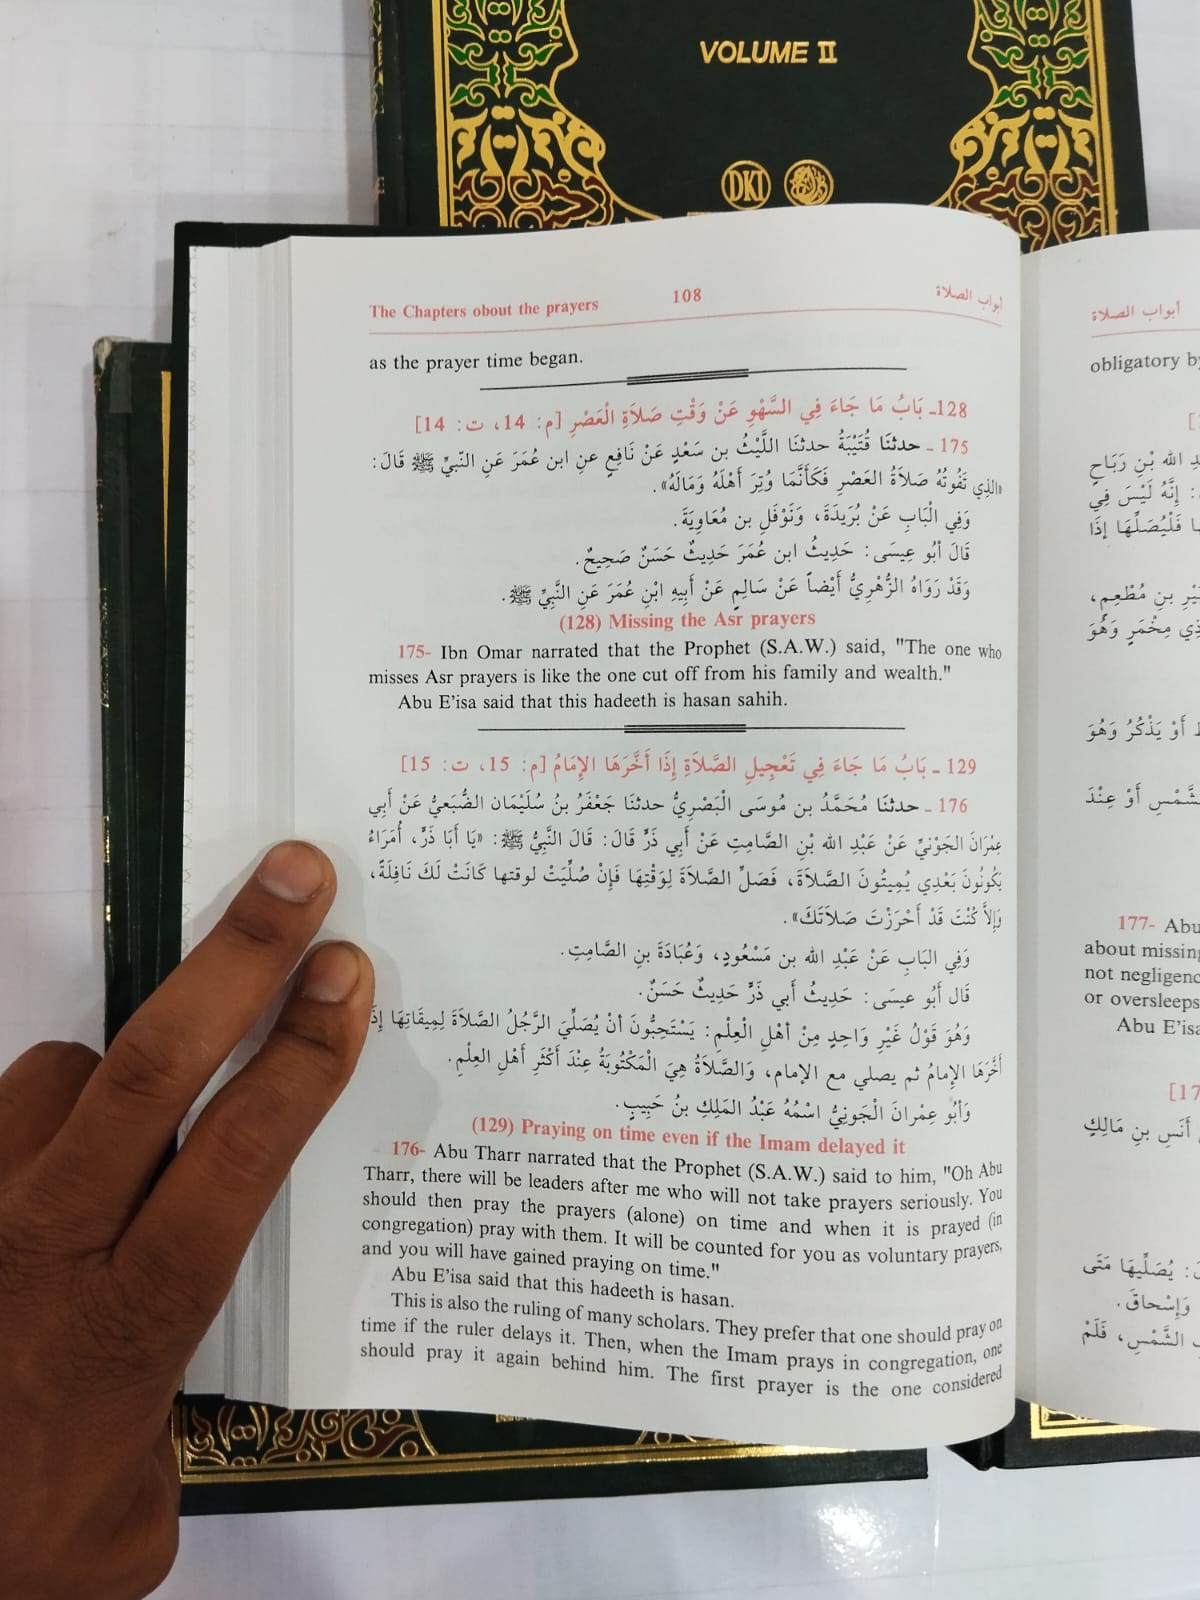 VOLUME II
DKI
The Chapters obout the prayers 108 أبواب الصلاة
as the prayer time began.
128ـ بَابُ مَا جَاءَ فِي السَّهْوِ عَنْ وَقْتِ صَلاَةِ الْعَصْرِ [م: 14، ت: 14]
175 ـ حدثنَا قُتَيْبَةُ حدثنَا اللَّيْثُ بن سَعْدٍ عَنْ نَافِعٍ عنِ ابن عُمَرَ عَنِ النَّبيِّ ﷺ قَالَ:
«الذِي تَفُوتُهُ صَلاَةُ العَصْرِ فَكَأَنَّمَا وُتِرَ أَهْلَهُ وَمَالَهُ».
وَفِي الْبَابِ عَنْ بُرَيدَةَ، وَنَوْفَلِ بن مُعَاوِيَةَ.
قَالَ أبُو عِيسَى: حَدِيثُ ابن عُمَرَ حَدِيثٌ حَسَنٌ صَحِيحٌ.
وَقَدْ رَوَاهُ الزُّهْرِيُّ أَيْضاً عَنْ سَالِمٍ عَنْ أَبِيهِ ابْنِ عُمَرَ عَنِ النَّبِيِّ ﷺ.
(128) Missing the Asr prayers
175- Ibn Omar narrated that the Prophet (S.A.W.) said, "The one who
misses Asr prayers is like the one cut off from his family and wealth."
Abu E'isa said that this hadeeth is hasan sahih.
129 ـ بَابُ مَا جَاءَ فِي تَعْجِيلِ الصَّلاَةِ إِذَا أَخَّرَهَا الإِمَامُ [م: 15، ت: 15]
176 ـ حدثنَا مُحَمَّدُ بن مُوسَى الْبَصْرِيُّ حدثنَا جَعْفَرُ بنُ سُلَيْمَان الضُّبَعيُّ عَنْ أَبِي
عِمْرَانَ الجَوْنيِّ عَنْ عَبْدِ الله بْنِ الصَّامِتِ عَنْ أَبِي ذَرٍّ قَالَ: قَالَ النَّبِيُّ ﷺ: «يَا أَبَا ذَرٍّ، أُمَرَاءُ
يَكُونُونَ بَعْدِي يُمِيتُونَ الصَّلاَةَ، فَصَلِّ الصَّلاَةَ لِوَقْتِهَا فَإِنْ صُلِّيَتْ لوقتها كَانَتْ لَكَ نَافِلَةً،
وَإِلاَّ كُنْتَ قَدْ أَحْرَزْتَ صَلاَتَكَ».
وَفِي البَابِ عَنْ عَبْدِ الله بن مَسْعُودٍ، وَعُبَادَةَ بنِ الصَّامِتِ.
قَال أَبُو عيسَى: حَدِيثُ أَبي ذَرٍّ حَدِيثٌ حَسَنٌ.
وَهُوَ قَوْلُ غَيْرِ وَاحِدٍ مِنْ أهْلِ الْعِلْمِ: يَسْتَحِبُّونَ أنْ يُصَلِّيَ الرَّجُلُ الصَّلاَةَ لِمِيقَاتِهَا إِذَا
أَخَّرَهَا الإِمَامُ ثم يصلي مع الإمام، وَالصَّلاَةُ هِيَ الْمَكْتُوبَةُ عِنْدَ أَكْثَرِ أَهْلِ العِلْمِ.
وَأبُو عِمْرانَ الْجَونِيُّ اسْمُهُ عَبْدُ المَلِكِ بنُ حَبِيبٍ.
(129) Praying on time even if the Imam delayed it
176- Abu Tharr narrated that the Prophet (S.A.W.) said to him, "Oh Abu
Tharr, there will be leaders after me who will not take prayers seriously. You
should then pray the prayers (alone) on time and when it is prayed (in
congregation) pray with them. It will be counted for you as voluntary prayers,
and you will have gained praying on time."
Abu E'isa said that this hadeeth is hasan.
This is also the ruling of many scholars. They prefer that one should pray on
time if the ruler delays it. Then, when the Imam prays in congregation, one
should pray it again behind him. The first prayer is the one considered
أبواب الصلاة
obligatory by
الله بْنِ رَبَاحٍ
: إِنَّهُ لَيْسَ فِي
فَلْيُصَلِّهَا إذَا
بنِ مُطْعِمٍ،
مِخْمَرٍ وَهُوَ
أَوْ يَذْكُرُ وَهُوَ
أَوْ عِنْدَ
177- Abu
about missing
not negligence
or oversleeps
Abu E'isa
[17
أَنَسِ بنِ مَالِكٍ
: يُصَلِّيهَا مَتَى
وَإِسْحاقَ.
الشَّمْسِ، فَلَمْ